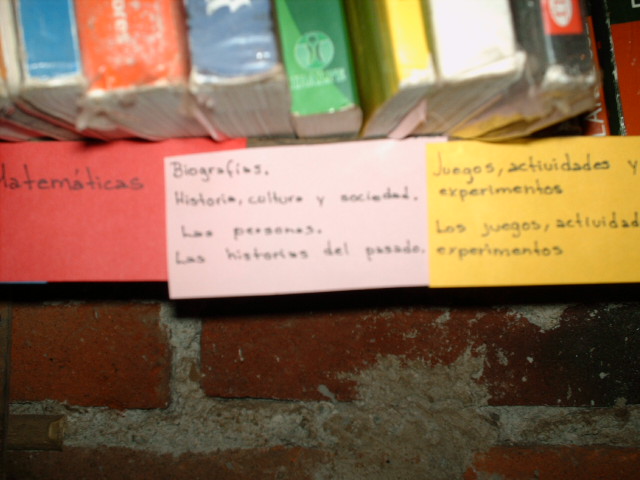 Matemáticas
Biografías.
Historia, cultura y sociedad.
Las personas.
Las historias del pasado.
Juegos, actividades y
experimentos
Los juegos, actividad
experimentos